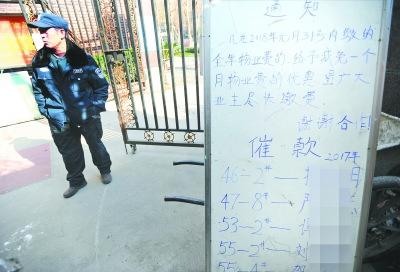 通知
凡在2018年元月31号内缴纳
全年物业费的,给予减免一个
月物业费的优惠,望广大
业主尽快缴费。
谢谢合作!
催款 2017年
46-2#—
47-8#—
53-2#—
55-2#—刘
55-4#—贺